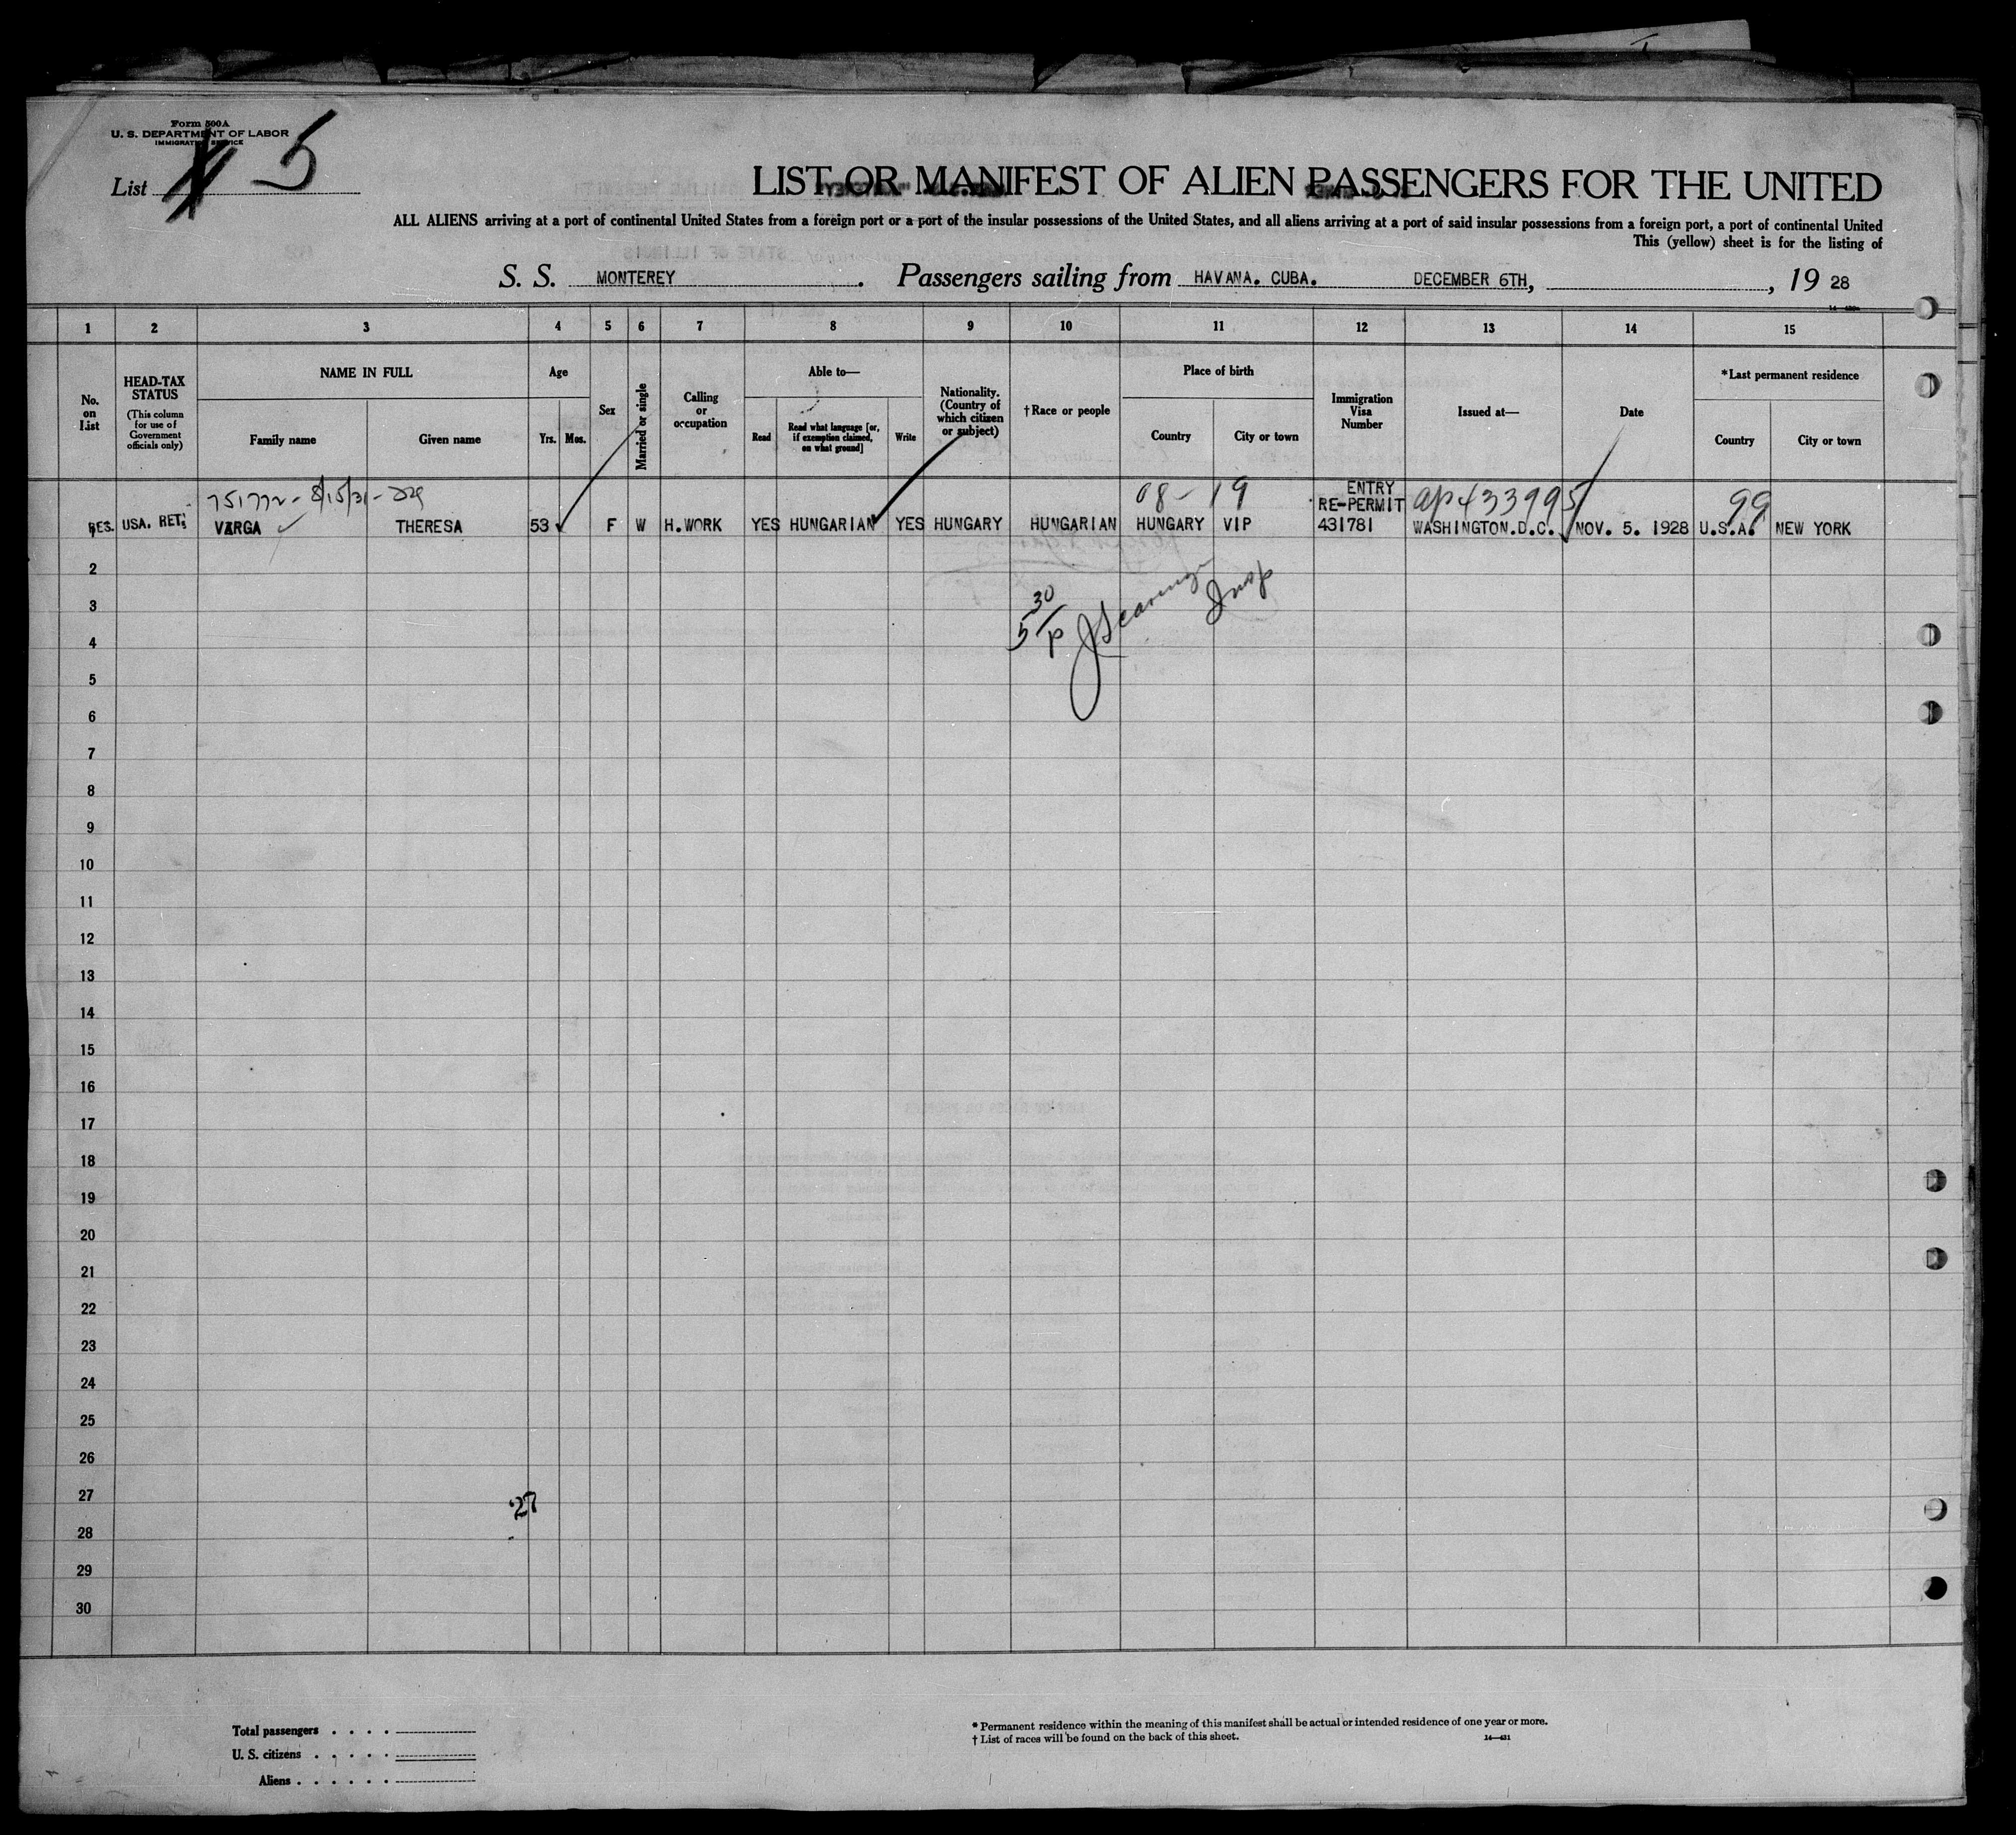 Form 500A
U. S. DEPARTMENT OF LABOR
IMMIGRATION SERVICE
List 5
LIST OR MANIFEST OF ALIEN PASSENGERS FOR THE UNITED
ALL ALIENS arriving at a port of continental United States from a foreign port or a port of the insular possessions of the United States, and all aliens arriving at a port of said insular possessions from a foreign port, a port of continental United
This (yellow) sheet is for the listing of
S. S. MONTEREY. Passengers sailing from HAVANA. CUBA. DECEMBER 6TH, , 19 28
1 2 3 4 5 6 7 8 9 10 11 12 13 14 15
No. on List
HEAD-TAX STATUS (This column for use of Government officials only)
NAME IN FULL
Family name Given name
Age
Yrs. Mos.
Sex
Married or single
Calling or occupation
Able to—
Read
Read what language [or, if exemption claimed, on what ground]
Write
Nationality. (Country of which citizen or subject)
†Race or people
Place of birth
Country City or town
Immigration Visa Number
Issued at—
Date
*Last permanent residence
Country City or town
751772 - 8/15/31 - 08- 19 ENTRY RE-PERMIT ap433995 99
RES. USA. RET. VARGA THERESA 53 F W H.WORK YES HUNGARIAN YES HUNGARY HUNGARIAN HUNGARY VIP 431781 WASHINGTON.D.C. NOV. 5. 1928 U.S.A. NEW YORK
2
3
5 30/p Insp
4
5
6
7
8
9
10
11
12
13
14
15
16
17
18
19
20
21
22
23
24
25
26
27
27
28
29
30
Total passengers . . . .
U. S. citizens . . . . .
Aliens . . . . . .
* Permanent residence within the meaning of this manifest shall be actual or intended residence of one year or more.
† List of races will be found on the back of this sheet.
14—431